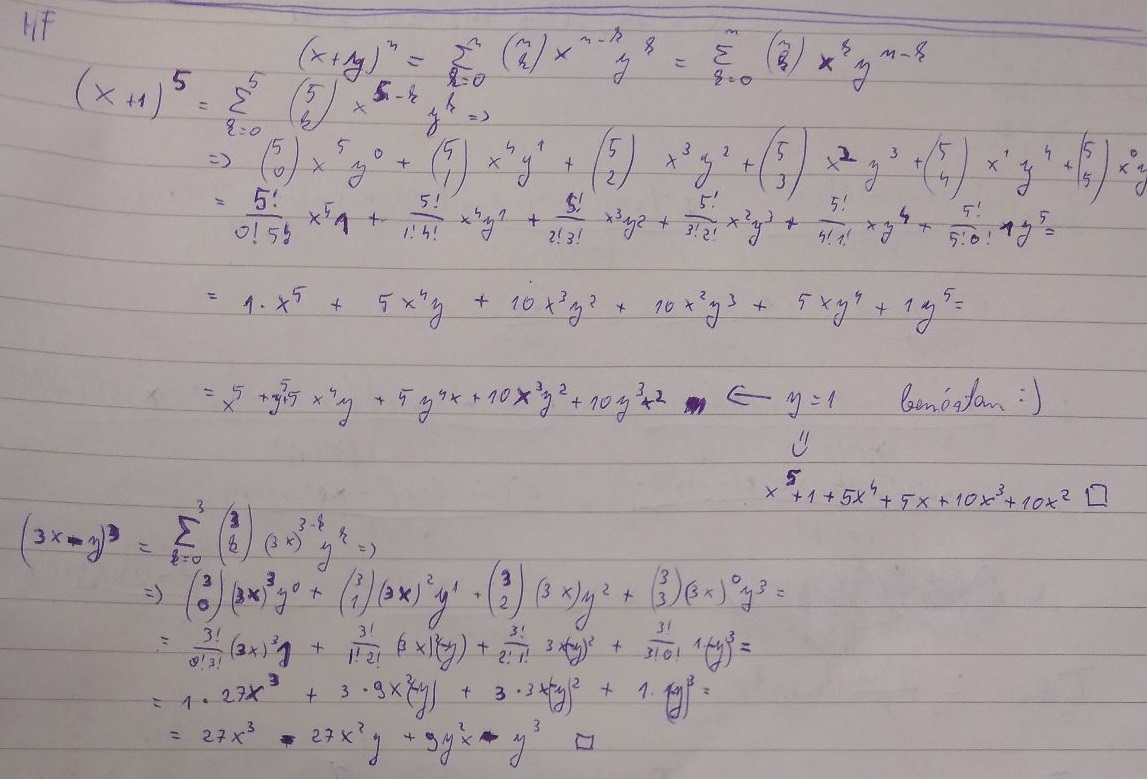 HF
(x+y)^n = ∑_{k=0}^{n} (n k) x^{n-k} y^k = ∑_{k=0}^{n} (n k) x^k y^{n-k}
(x+1)^5 = ∑_{k=0}^{5} (5 k) x^{5-k} y^k =>
=> (5 0) x^5 y^0 + (5 1) x^4 y^1 + (5 2) x^3 y^2 + (5 3) x^2 y^3 + (5 4) x^1 y^4 + (5 5) x^0 y
= 5!/0!5! x^5 1 + 5!/1!4! x^4 y^1 + 5!/2!3! x^3 y^2 + 5!/3!2! x^2 y^3 + 5!/4!1! x y^4 + 5!/5!0! 1 y^5 =
= 1·x^5 + 5x^4y + 10x^3y^2 + 10x^2y^3 + 5xy^4 + 1y^5 =
= x^5 + y^5 + 5x^4y + 5y^4x + 10x^3y^2 + 10y^3x^2 ← y=1 :)
x^5+1+5x^4+5x+10x^3+10x^2 □
(3x-y)^3 = ∑_{k=0}^{3} (3 k) (3x)^{3-k} y^k =>
=> (3 0) (3x)^3 y^0 + (3 1) (3x)^2 y^1 + (3 2) (3x) y^2 + (3 3) (3x)^0 y^3 =
= 3!/0!3! (3x)^3 1 + 3!/1!2! (3x)^2 (-y) + 3!/2!1! 3x(-y)^2 + 3!/3!0! 1·(-y)^3 =
= 1·27x^3 + 3·9x^2(-y) + 3·3x(-y)^2 + 1·(-y)^3 =
= 27x^3 - 27x^2y + 9y^2x - y^3 □